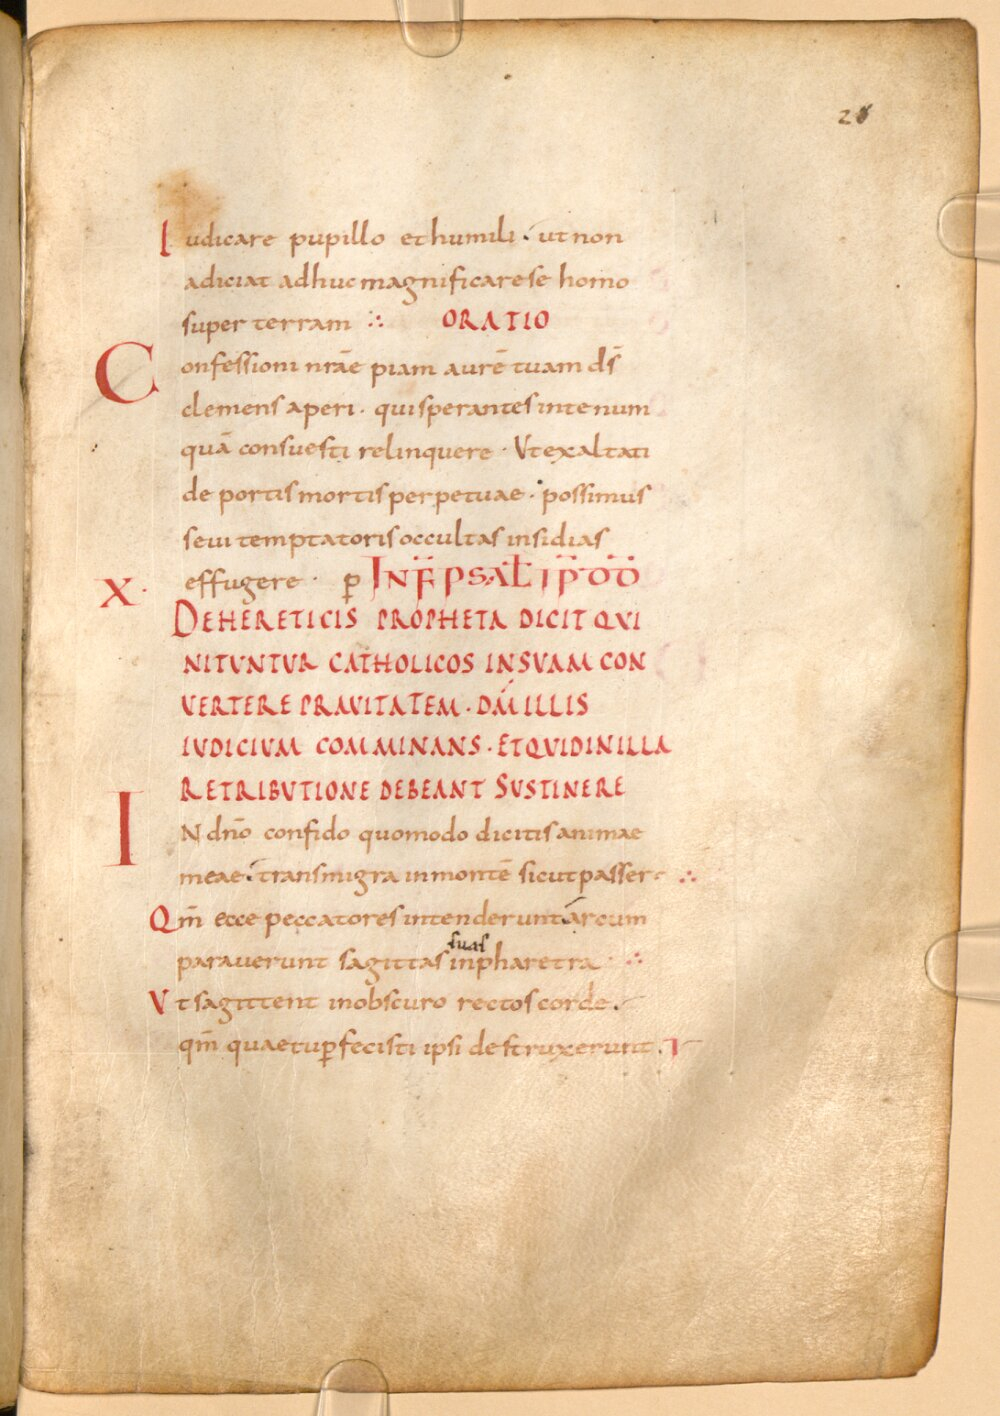 28
Iudicare pupillo et humili · ut non
adiciat adhuc magnificare se homo
super terram ∴ ORATIO
Confessioni nr̄ae piam aurē tuam ds̄
clemens aperi · qui sperantes in te num
quā consuesti relinquere · Ut exaltati
de portis mortis perpetuae · possimus
seui temptatoris occultas insidias
effugere ·
X · DE HERETICIS PROPHETA DICIT QVI
NITVNTVR CATHOLICOS IN SVAM CON
VERTERE PRAVITATEM · DM̄ ILLIS
IVDICIVM COMMINANS · ET QVID IN ILLA
RETRIBVTIONE DEBEANT SUSTINERE
IN dn̄o confido quomodo dicitis animae
meae · transmigra in montē sicut passer ∴
Qm̄ ecce peccatores intenderunt arcum
parauerunt sagittas suas in pharetra ∴
Vt sagittent in obscuro rectos corde ·
qm̄ quae tu ꝑfecisti ipsi destruxerunt ·